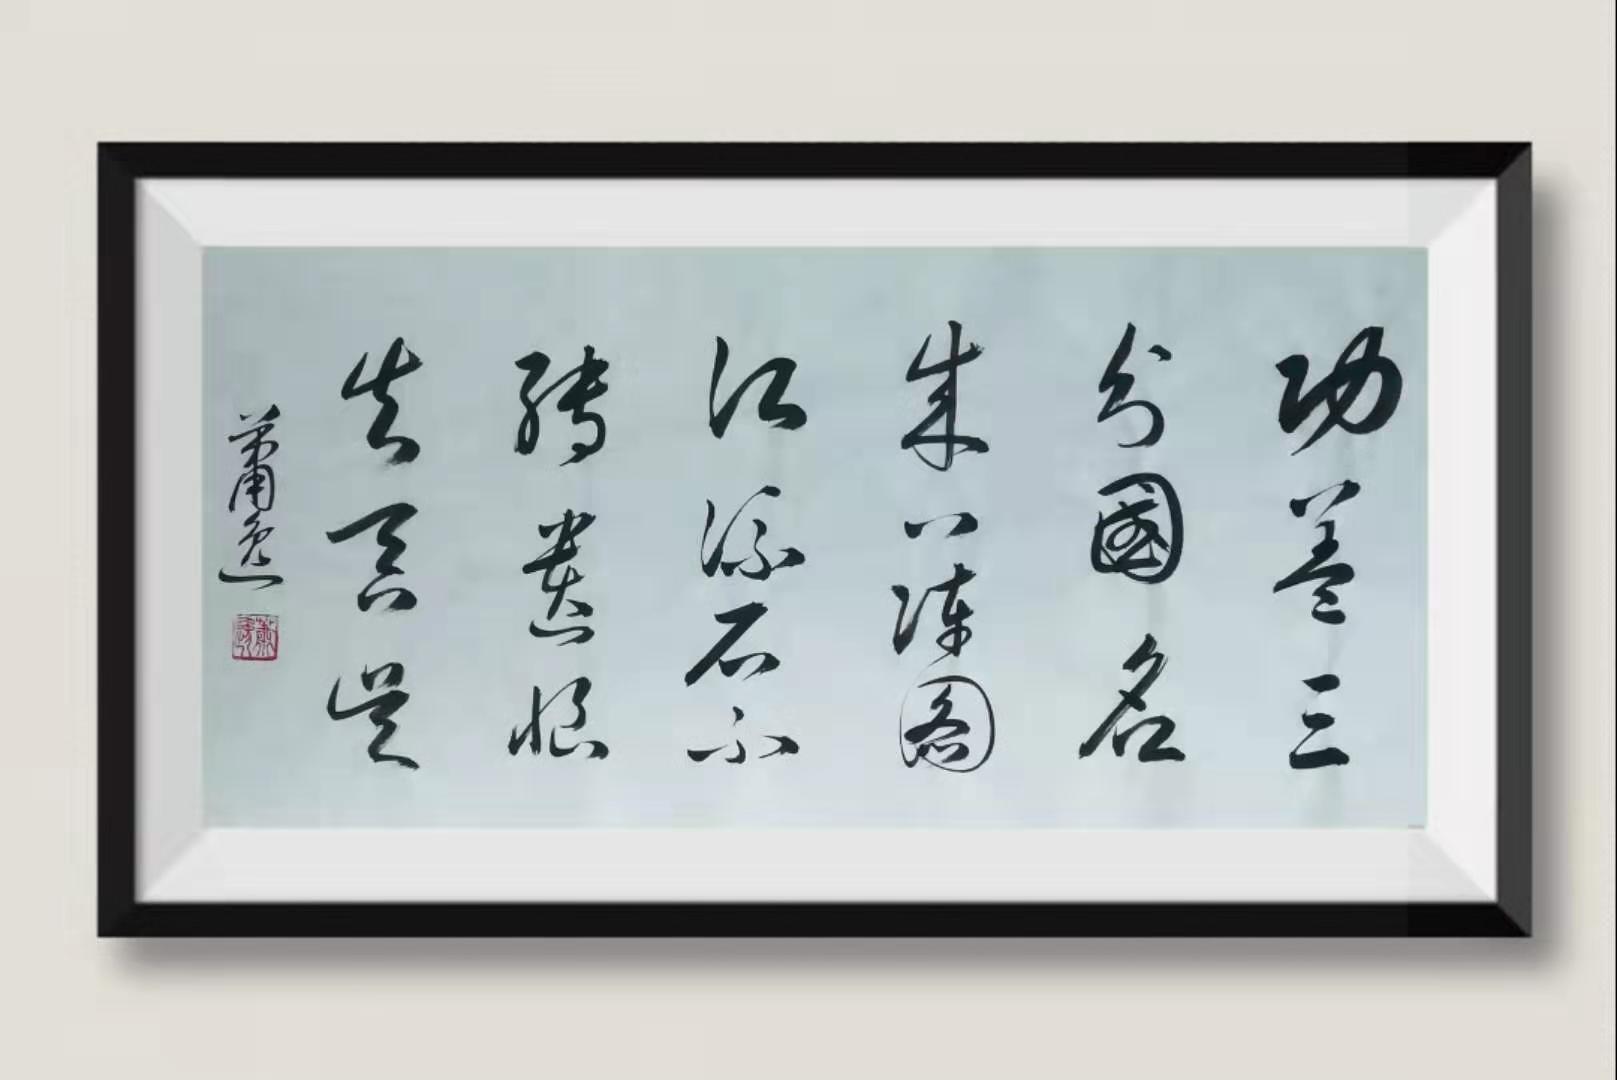 功蓋三
分國名
成八陣圖
江流石不
轉遺恨
失吞吴
蕭逸